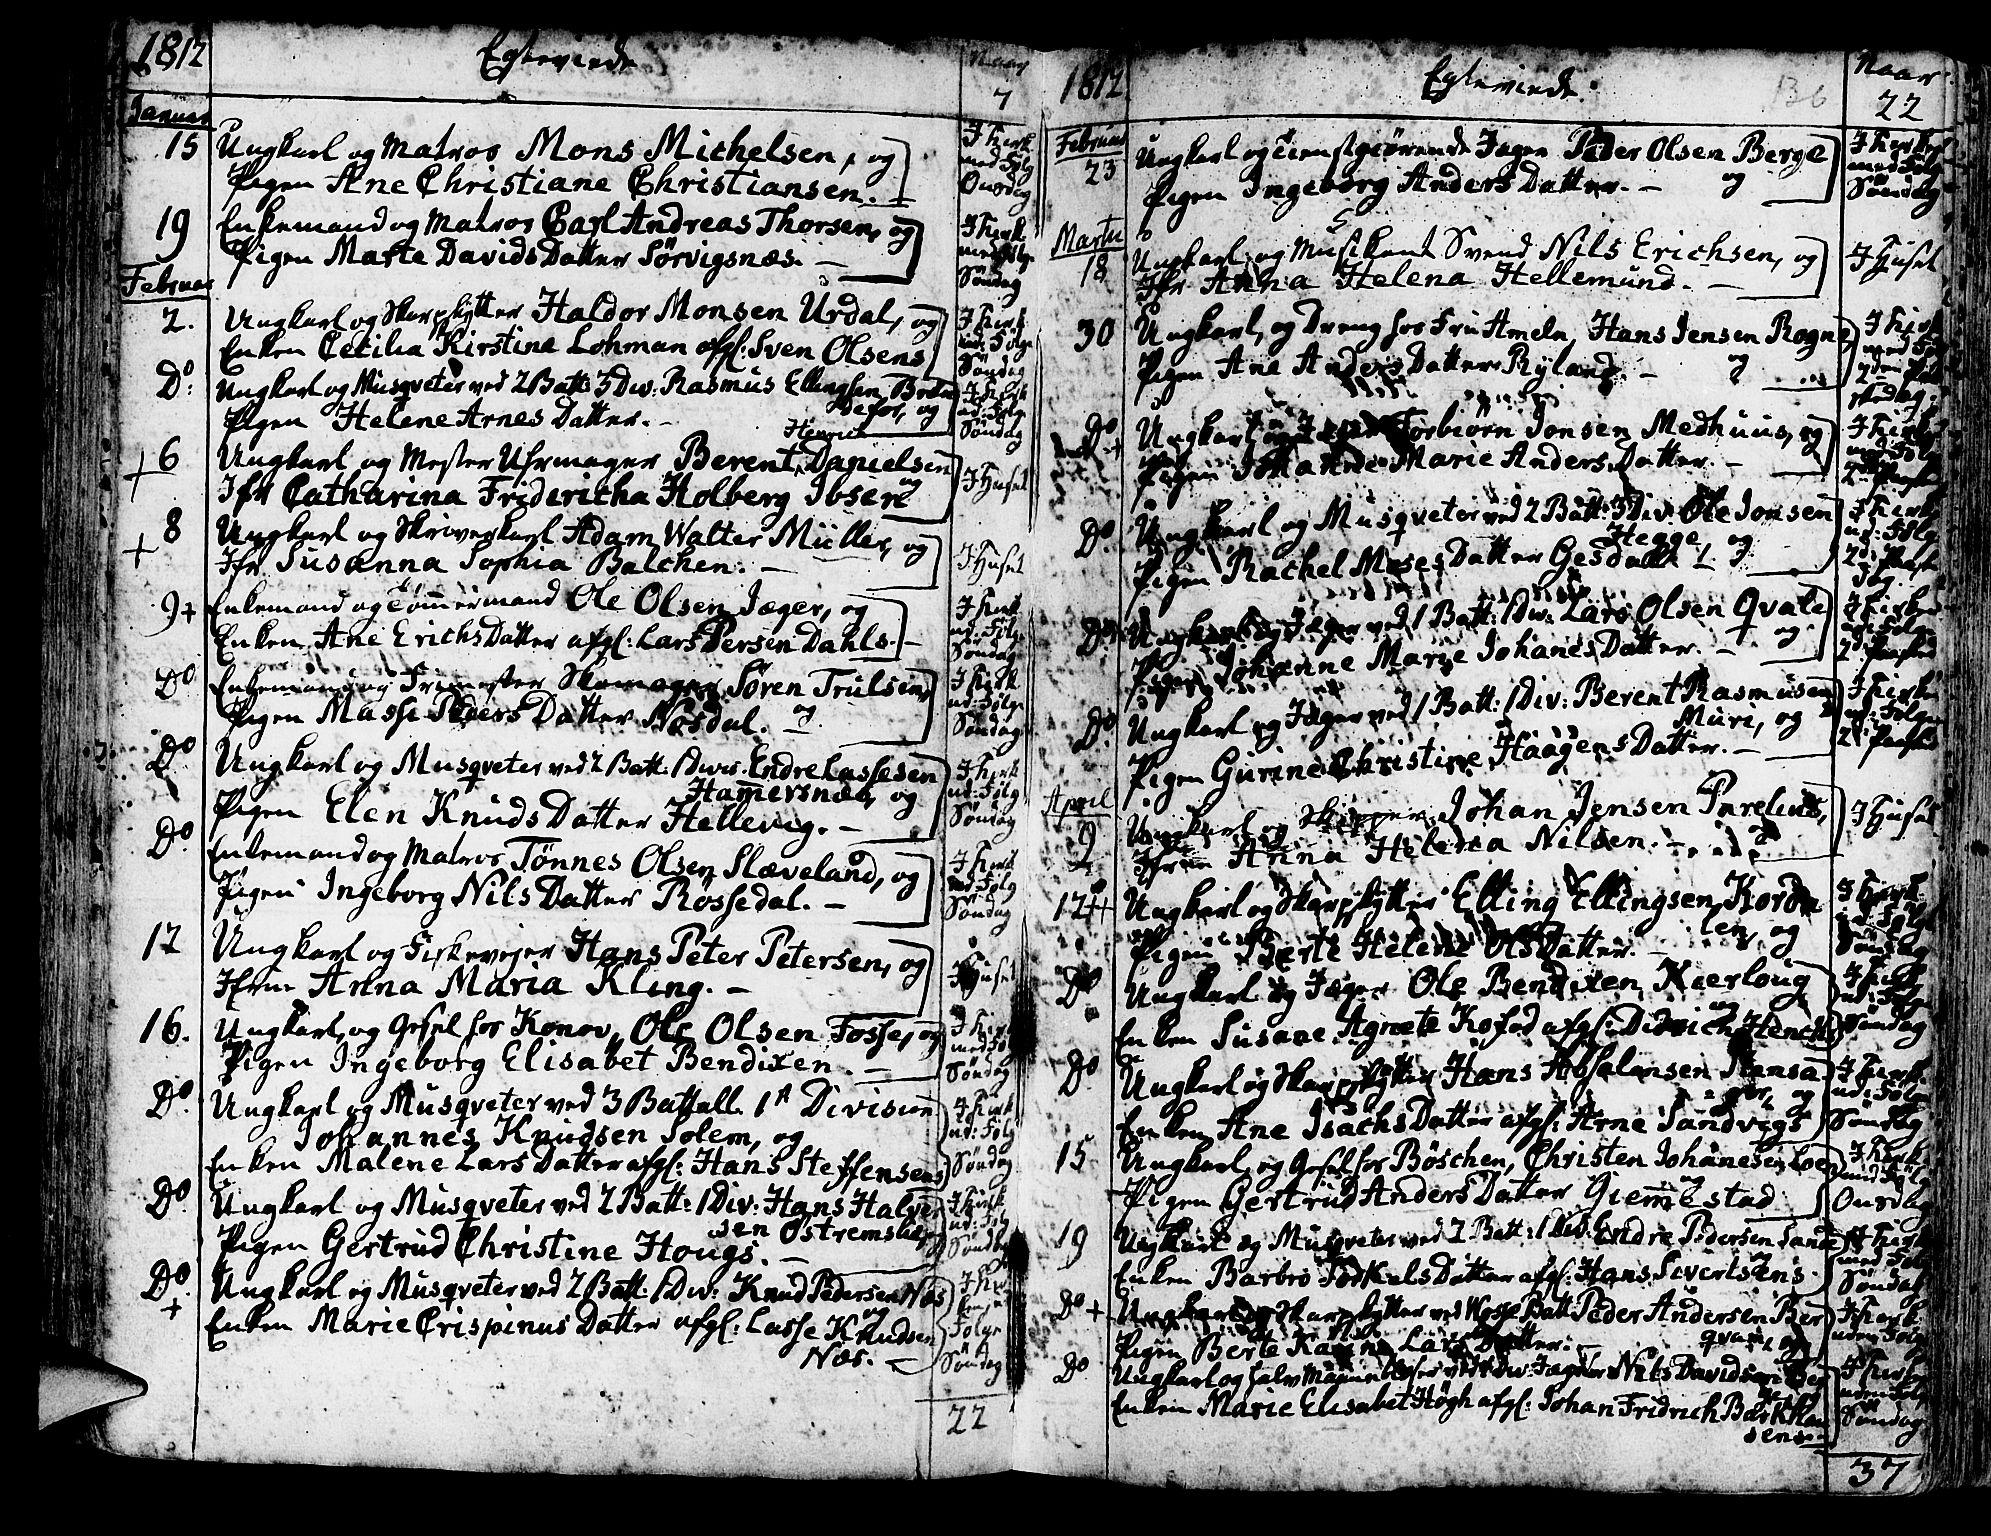 1812
Egteviede
Naar
7
Januar
15 Ungkarl og Matros Mons Michelsen, og
Pigen Ane Christiane Christiansen. -
I Kirk
med Følg
Onsdag
19 Enkemand og Matros Carl Andreas Thorsen, og
Pigen Marte Davids Datter Sørvigsnæs. -
I Kirk
med Følge
Søndag
Februar
2. Ungkarl og Skarpskytter Haldor Monsen Urdal, og
Enken Cecilia Kirstina Lohman afgl: Sven Olsens
I Kirk
ud: Følge
Søndag
Do. Ungkarl og Musqveter ved 2 Batt: 3 Div. Rasmus Ellingsen
defor, og
Pigen Helene Arnes Datter. -
I Kirk
ud: Følg
Søndag
Henrich
+ 6 Ungkarl og Mester Uhrmager Berent Danielsen
og
Jfr Catharina Fridericha Holberg Ibsen
I Huset
8 + Ungkarl og Skriverkarl Adam Walter Müller, og
Jfr Susanna Sophia Balchen. -
I Huset
9 + Enkemand og Tømmermand Ole Olsen Jæger, og
Enken Ane Erichs Datter afgl: Lars Persen Dahls. -
I Kirk
ud: Følg
Søndag
Do Enkemand og Frimester Skomager Søren Trulsen,
og
Pigen Masse Peders Datter Nosdal. -
I Kirk
ud: Følge
Søndag
Do Ungkarl og Musqveter ved 2 Batt: 1 Divis. Endre Lassesen
Hamersnæs, og
Pigen Elen Knuds Datter Hellevig. -
I Kirk
ud: Følg
Søndag
Do Enkemand og Matros Tønnes Olsen Slæveland, og
Pigen Ingeborg Nils Datter Røssedal. -
I Kirk
Følg
Søndag
12 Ungkarl og Fiskevejer Hans Peter Petersen, og
Jfru Anna Maria Kling. -
I Huset
16. Ungkarl, og Gesel hos Konow, Ole Olsen Fosse, og
Pigen Ingeborg Elisabet Bendixen. -
I Kirk
med Føl
Søndag
Do. Ungkarl og Musqveter ved 3 Battall. 1st Division
Johannes Knudsen Solem, og
Enken Malene Lars Datter afgl: Hans Steffensens
I Kirk
ud: Følg
Søndag
Do. Ungkarl og Musqveter ved 2 Batt: 1 Div: Hans Halvor
sen Ostremslie, og
Pigen Gertrud Christine Hougs. -
I Kirk
ud: Følg
Søndag
Do. + Ungkarl og Musqveter ved 2 Batt: 1 Div: Knud Pedersen Næs
og
Enken Marie Crispinus Datter afgl: Lasse Knudsen
Næs. -
Følge
Søndag
22
1812.
Egteviede.
136
Naar.
22
Februar
23 Ungkarl og tienstgiørende Jæger Peder Olsen Berge
og
Pigen Ingeborg Anders Datter. -
I Kirken
med Følg
Søndag
Martii
18 Ungkarl og Musikant Svend Nils Erichsen, og
Jfr Anna Helena Hellemund. -
I Huset
30 Ungkarl, og Dreng hos Fru Ameln, Hans Jensen Rogne,
og
Pigen Ane Anders Datter Ryland. -
I Kirk
med Føl
2den Paa
skedag.
Do Ungkarl og Jæger Torbiørn Jonsen Medhuus, og
Pigen Johanne Marie Anders Datter. -
I Kirk
med Følg
Do. Ungkarl og Musqveter ved 2 Batt: 3 Div: Ole Jonsen
Hegge, og
Pigen Rachel Moses Datter Gesdahl
I Kirk
ud: Følg
2d: Paask
Dag.
Do. Ungkarl og Jæger ved 1 Batt: 1 Div: Lars Olsen Qvale
og
Pigen Johanne Marie Johanes Datter. -
Do. Ungkarl og Jæger ved 1 Batt: 1 Div: Berent Rasmusen
Muri, og
Pigen Gurine Christine Haagens Datter. -
April
2 Ungkarl og Skipper Johan Jensen Parelius,
Jfru Anna Helena Nilsen. -
I Huset
12 ++ Ungkarl og Skarpskytter Elling Ellingsen Korda
len, og
Pigen Berte Helene Ols Datter. -
Søndag
Do Ungkarl og Jæger Ole Bendixen Kierloug
og
Enken Susane Agnete Kofod afgl: Didrich Hencks
I Kirk
ud: Følg
Søndag
Do. Ungkarl og Skarpskytter Hans Absalonsen Ramsa
og
Enken Ane Isachs Datter afgl: Arne Sandvigs
I Kirk
ud: Følg
Søndag
15 Ungkarl og Gesel hos Bøschen, Christen Johanesen Loe
og
Pigen Gertrud Anders Datter Giemmestad
I Kirk
med Følg
Onsdag
19 Ungkarl og Musqveter ved 2 Batt: 1 Div. Endre Pedersen Sande
og
Enken Barbro Torkels Datter afgl: Hans Sivertsens
I Kirk
med Følg
Søndag
Do + Ungkarl og Skarpskytter ved Wosse Batt: Peder Andersen Ber
qvam, og
Pigen Berte Karine Lars Datter. -
I Kirk
uden Følg
Do Ungkarl og Nils Davidsen
Enken Marie Elisabet Høgh afgl: Johan Fridrich Bark Han
sens -
I Kirk
uden Følg
Søndag
37